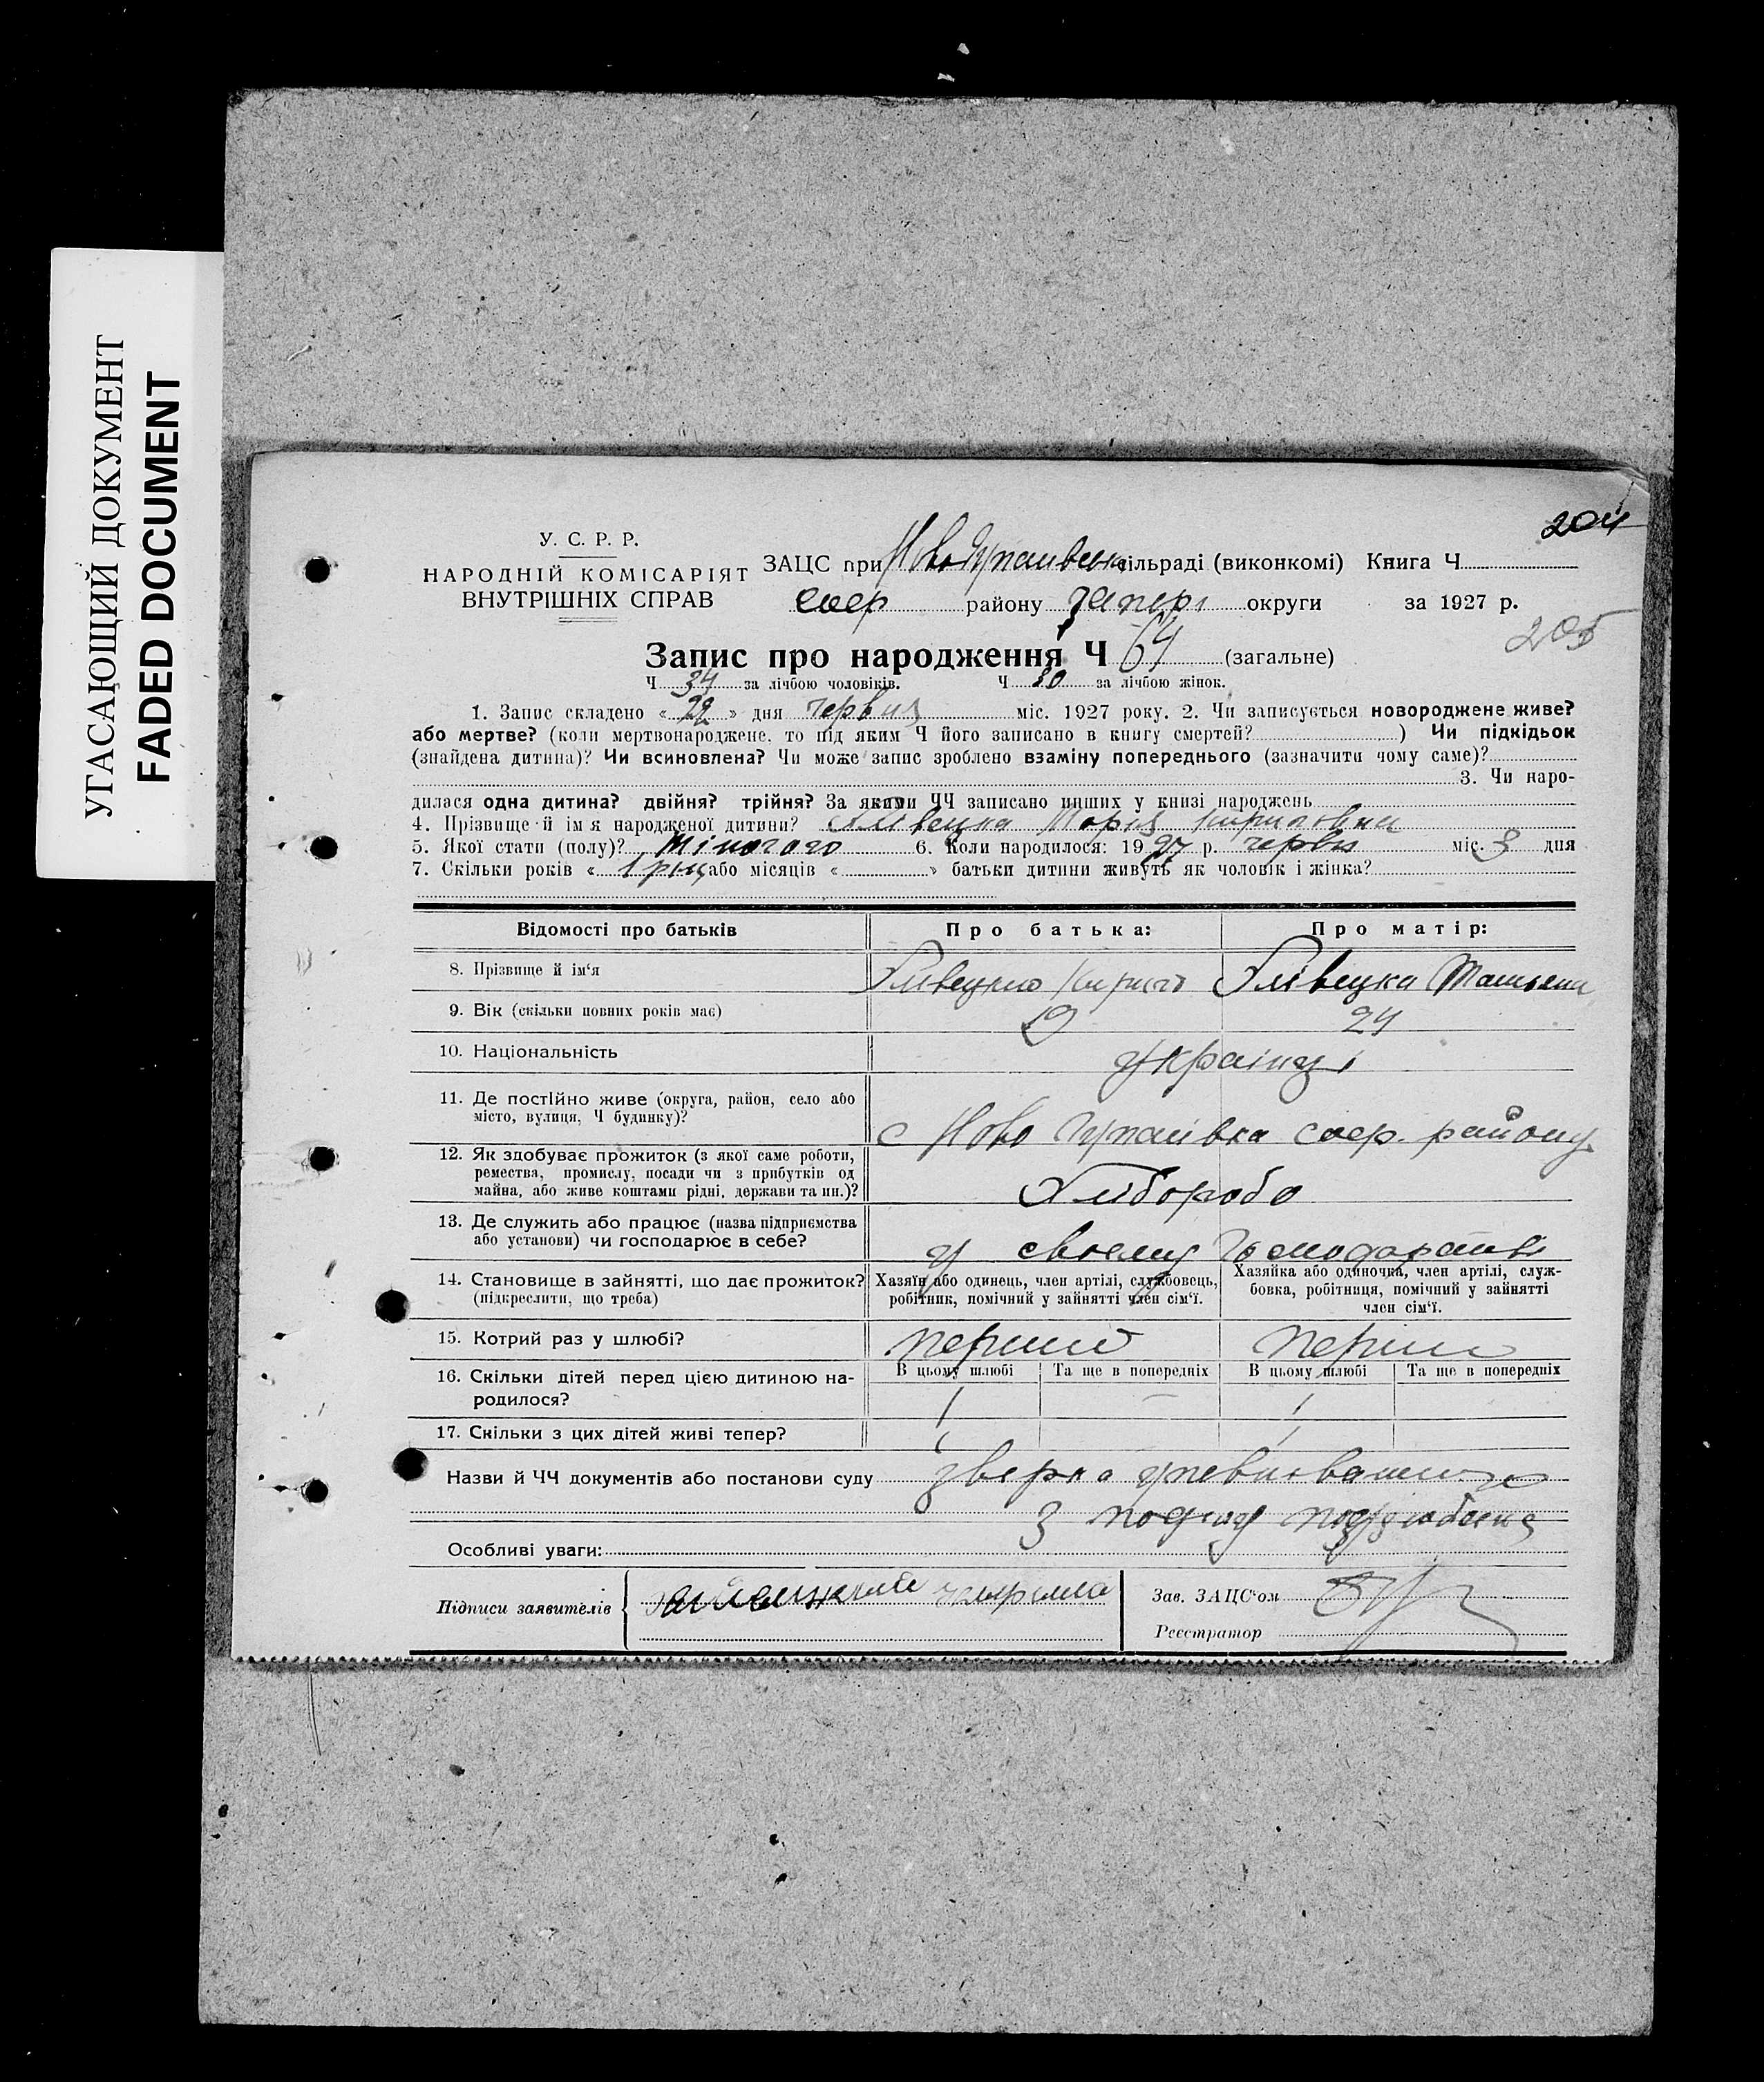 УГАСАЮЩИЙ ДОКУМЕНТ
FADED DOCUMENT
204
205
У. С. Р. Р.
НАРОДНІЙ КОМІСАРІЯТ
ВНУТРІШНІХ СПРАВ
ЗАЦС при сільраді (виконкомі) Книга Ч
району округи за 1927 р.
Запис про народження Ч 64 (загальне)
Ч 34 за лічбою чоловіків. Ч 30 за лічбою жінок.
1. Запис складено « 22 » дня червня міс. 1927 року. 2. Чи записується новороджене живе?
або мертве? (коли мертвонароджене, то під яким Ч його записано в книгу смертей? ) Чи підкідьок
(знайдена дитина)? Чи всиновлена? Чи може запис зроблено взаміну попереднього (зазначити чому саме)?
3. Чи наро-
дилася одна дитина? двійня? трійня? За якими ЧЧ записано инших у книзі народжень
4. Прізвище й ім'я народженої дитини? Марія Кириловна
5. Якої стати (полу)? жіночого 6. Коли народилося: 1927 р. червня міс. 3 дня
7. Скільки років « 1 рік або місяців « » батьки дитини живуть як чоловік і жінка?
Відомості про батьків
Про батька:
Про матір:
8. Прізвище й ім'я
Кирило
Татьяна
9. Вік (скільки повних років має)
24
10. Національність
Українці
11. Де постійно живе (округа, район, село або
місто, вулиця, Ч будинку)?
с Ново район
12. Як здобуває прожиток (з якої саме роботи,
ремества, промислу, посади чи з прибутків од
майна, або живе коштами рідні, держави та ин.)?
Хліборобо
13. Де служить або працює (назва підприємства
або установи) чи господарює в себе?
у своему господарстві
14. Становище в зайнятті, що дає прожиток?
(підкреслити, що треба)
Хазяїн або одинець, член артілі, службовець,
робітник, помічний у зайнятті член сім'ї.
Хазяйка або одиночка, член артілі, служ-
бовка, робітниця, помічний у зайнятті
член сім'ї.
15. Котрий раз у шлюбі?
перший
перши
16. Скільки дітей перед цією дитиною на-
родилося?
В цьому шлюбі
Та ще в попередніх
В цьому шлюбі
Та ще в попередніх
1
1
17. Скільки з цих дітей живі тепер?
1
1
Назви й ЧЧ документів або постанови суду
Особливі уваги:
Підписи заявителів
Зав. ЗАЦС'ом
Реєстратор